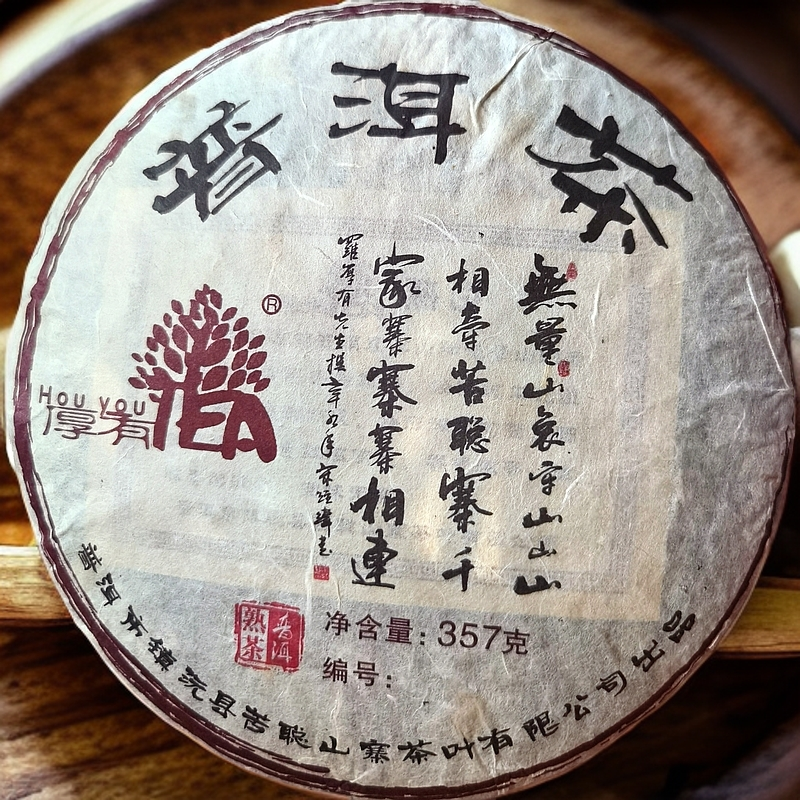 普洱茶
無量山哀牢山山山
相牽苦聪寨千
家寨寨寨相連
羅厚有先生撰辛卯年
®
HOU YOU
厚有
TEA
普洱
熟茶
净含量:357克
编号:
普洱市镇沅县苦聪山寨茶叶有限公司出品